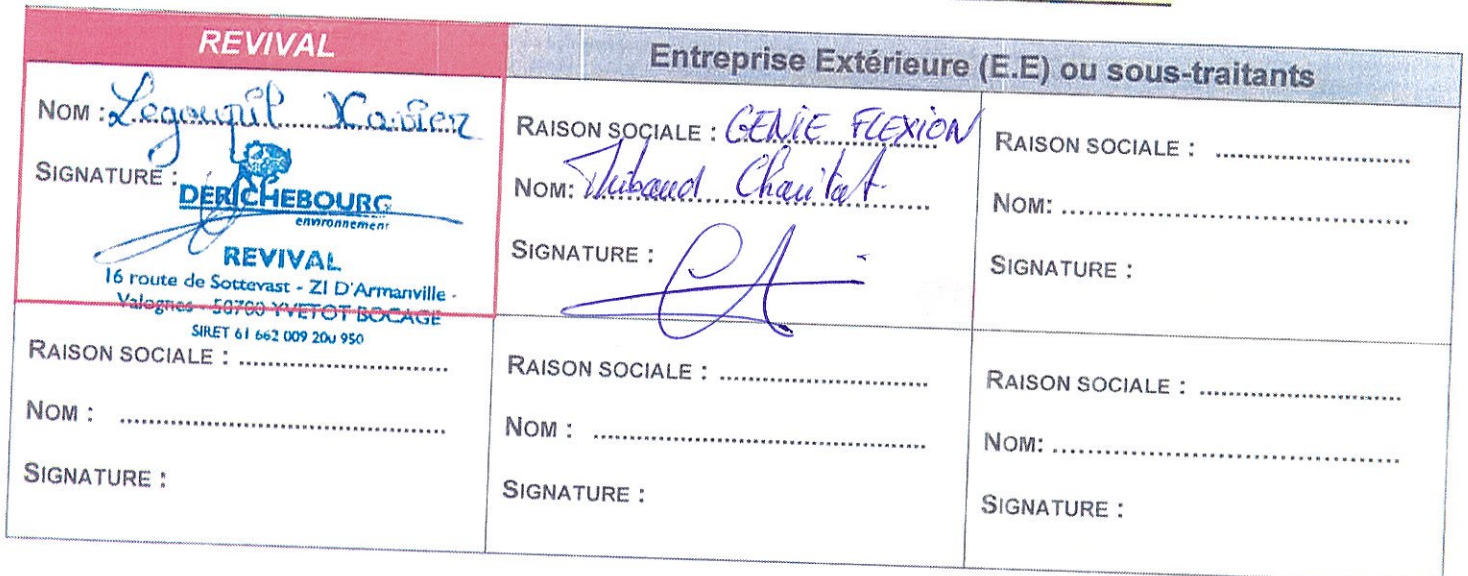 REVIVAL
Entreprise Extérieure (E.E) ou sous-traitants
NOM : Legoupil Xavier
SIGNATURE :
DERICHEBOURG
environnement
REVIVAL
16 route de Sottevast - ZI D'Armanville -
Valognes - 50700 YVETOT BOCAGE
SIRET 61 662 009 200 950
RAISON SOCIALE : GENIE FLEXION
NOM: Thibaud
SIGNATURE :
RAISON SOCIALE :
NOM:
SIGNATURE :
RAISON SOCIALE :
NOM :
SIGNATURE :
RAISON SOCIALE :
NOM :
SIGNATURE :
RAISON SOCIALE :
NOM:
SIGNATURE :